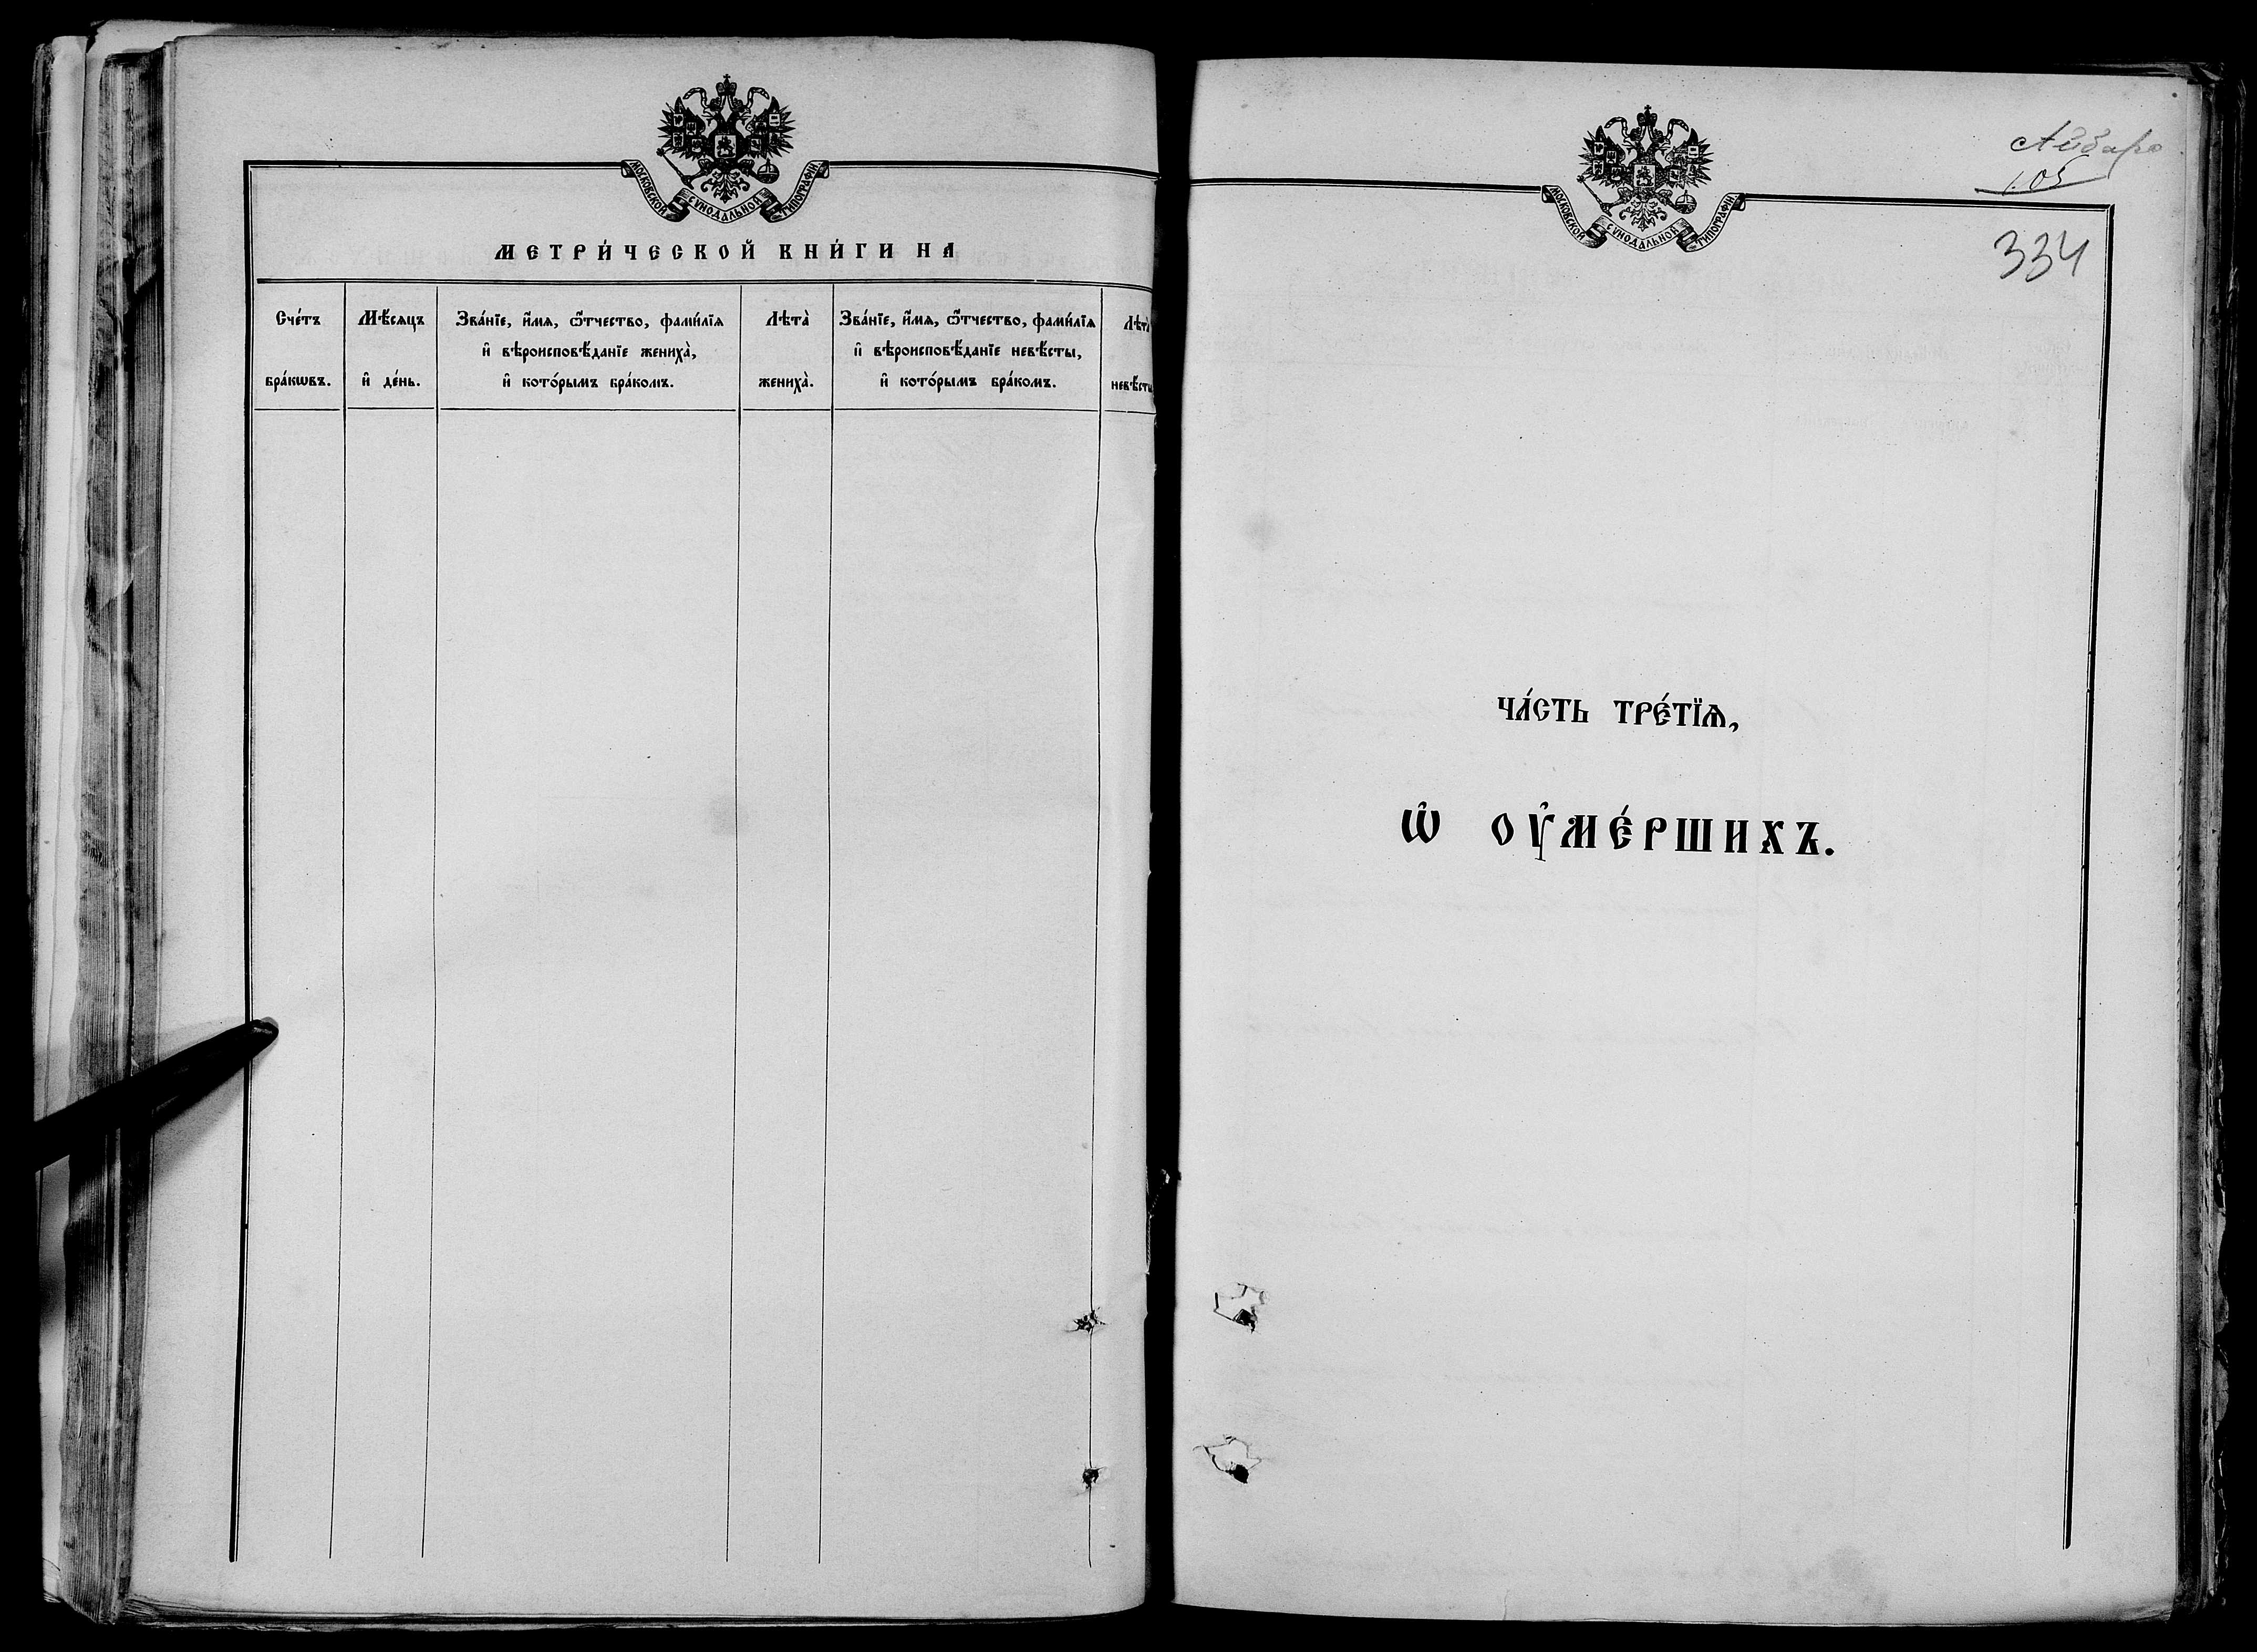 МОСКОВСКОЙ СѴНОДАЛЬНОЙ ТИПОГРАФІИ.
МЕТРИ́ЧЕСКОЙ КНИ́ГИ НА
Сче́тъ
бра́кѡвъ.
Мѣ́сяцъ
и҆ де́нь.
Зва́нїе, и҆́мѧ, ѻ҆́тчество, фами́лїѧ
и҆ вѣроисповѣ́данїе жениха̀,
и҆ кото́рымъ бра́комъ.
Лѣта̀
жениха̀.
Зва́нїе, и҆́мѧ, ѻ҆́тчество, фами́лїѧ
и҆ вѣроисповѣ́данїе невѣ́сты,
и҆ кото́рымъ бра́комъ.
Лѣта̀
невѣ́сты
МОСКОВСКОЙ СѴНОДАЛЬНОЙ ТИПОГРАФІИ.
105
334
ЧА́СТЬ ТРЕ́ТЇѦ,
Ѡ҆ ОУ҆МЕ́РШИХЪ.